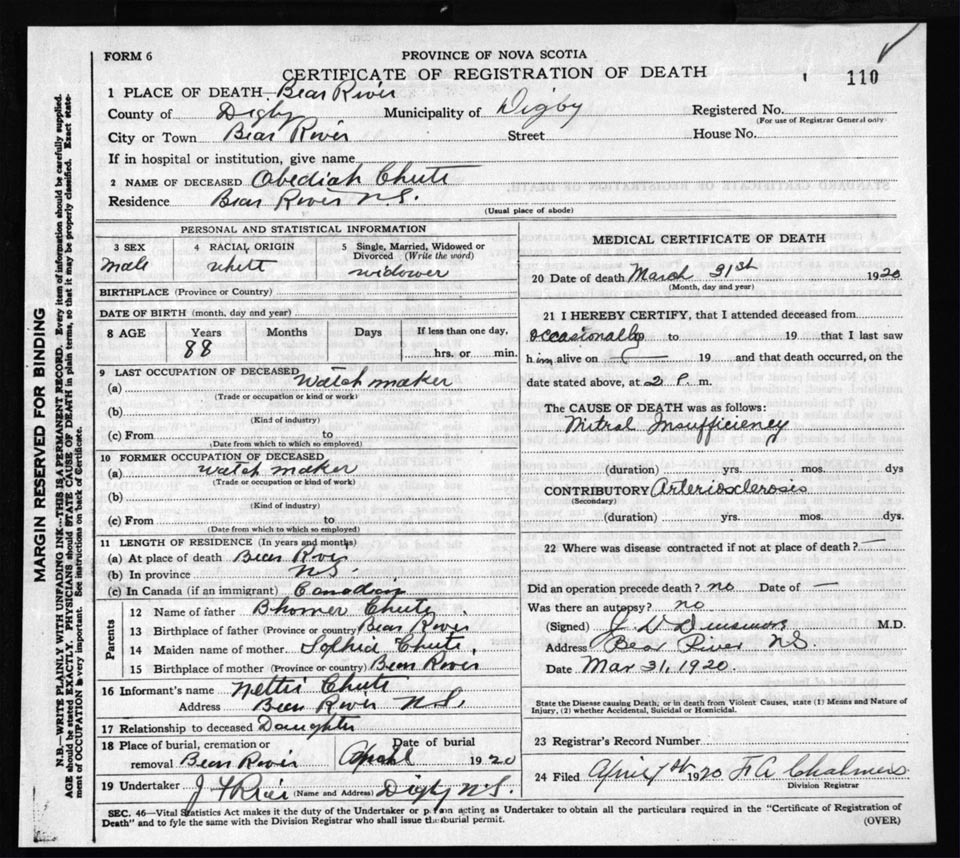 FORM 6
PROVINCE OF NOVA SCOTIA
CERTIFICATE OF REGISTRATION OF DEATH
110
1 PLACE OF DEATH Bear River
County of Digby Municipality of Digby Registered No.
(For use of Registrar General only)
City or Town Bear River Street House No.
If in hospital or institution, give name
2 NAME OF DECEASED Obediah Chute
Residence Bear River N.S.
(Usual place of abode)
PERSONAL AND STATISTICAL INFORMATION
3 SEX 4 RACIAL ORIGIN 5 Single, Married, Widowed or Divorced (Write the word)
Male white widower
BIRTHPLACE (Province or Country)
DATE OF BIRTH (month, day and year)
8 AGE Years Months Days If less than one day,
88 hrs. or min.
9 LAST OCCUPATION OF DECEASED
(a) Watch maker
(Trade or occupation or kind or work)
(b)
(Kind of industry)
(c) From to
(Date from which to which so employed)
10 FORMER OCCUPATION OF DECEASED
(a) watch maker
(Trade or occupation or kind of work)
(b)
(Kind of industry)
(c) From to
(Date from which to which so employed)
11 LENGTH OF RESIDENCE (In years and months)
(a) At place of death Bear River
(b) In province N.S.
(c) In Canada (if an immigrant) Canadian
Parents
12 Name of father Chute
13 Birthplace of father (Province or country) Bear River
14 Maiden name of mother Sophia Chute
15 Birthplace of mother (Province or country) Bear River
16 Informant's name Nettie Chute
Address Bear River N.S.
17 Relationship to deceased Daughter
18 Place of burial, cremation or removal Bear River
Date of burial April 1920
19 Undertaker J Rice (Name and Address) Digby N.S.
MEDICAL CERTIFICATE OF DEATH
20 Date of death March 31st 1920
(Month, day and year)
21 I HEREBY CERTIFY, that I attended deceased from
occasionally to 19 that I last saw
him alive on — 19 and that death occurred, on the
date stated above, at 2 P. m.
The CAUSE OF DEATH was as follows:
Mitral Insufficiency
(duration) yrs. mos. dys
CONTRIBUTORY Arteriosclerosis
(Secondary)
(duration) yrs. mos. dys.
22 Where was disease contracted if not at place of death? —
Did an operation precede death? no Date of —
Was there an autopsy? no
(Signed) M.D.
Address Bear River N.S.
Date Mar 31, 1920.
State the Disease causing Death; or in death from Violent Causes, state (1) Means and Nature of
Injury, (2) whether Accidental, Suicidal or Homicidal.
23 Registrar's Record Number
24 Filed April 1920 F A Chalmers
Division Registrar
SEC. 46—Vital Statistics Act makes it the duty of the Undertaker or person acting as Undertaker to obtain all the particulars required in the "Certificate of Registration of
Death" and to fyle the same with the Division Registrar who shall issue the burial permit. (OVER)
MARGIN RESERVED FOR BINDING
N.B.—WRITE PLAINLY WITH UNFADING INK—THIS IS A PERMANENT RECORD. Every item of information should be carefully supplied.
AGE should be stated EXACTLY. PHYSICIANS should STATE CAUSE OF DEATH in plain terms, so that it may be properly classified. Exact state-
ment of OCCUPATION is very important. See instructions on back of Certificate.